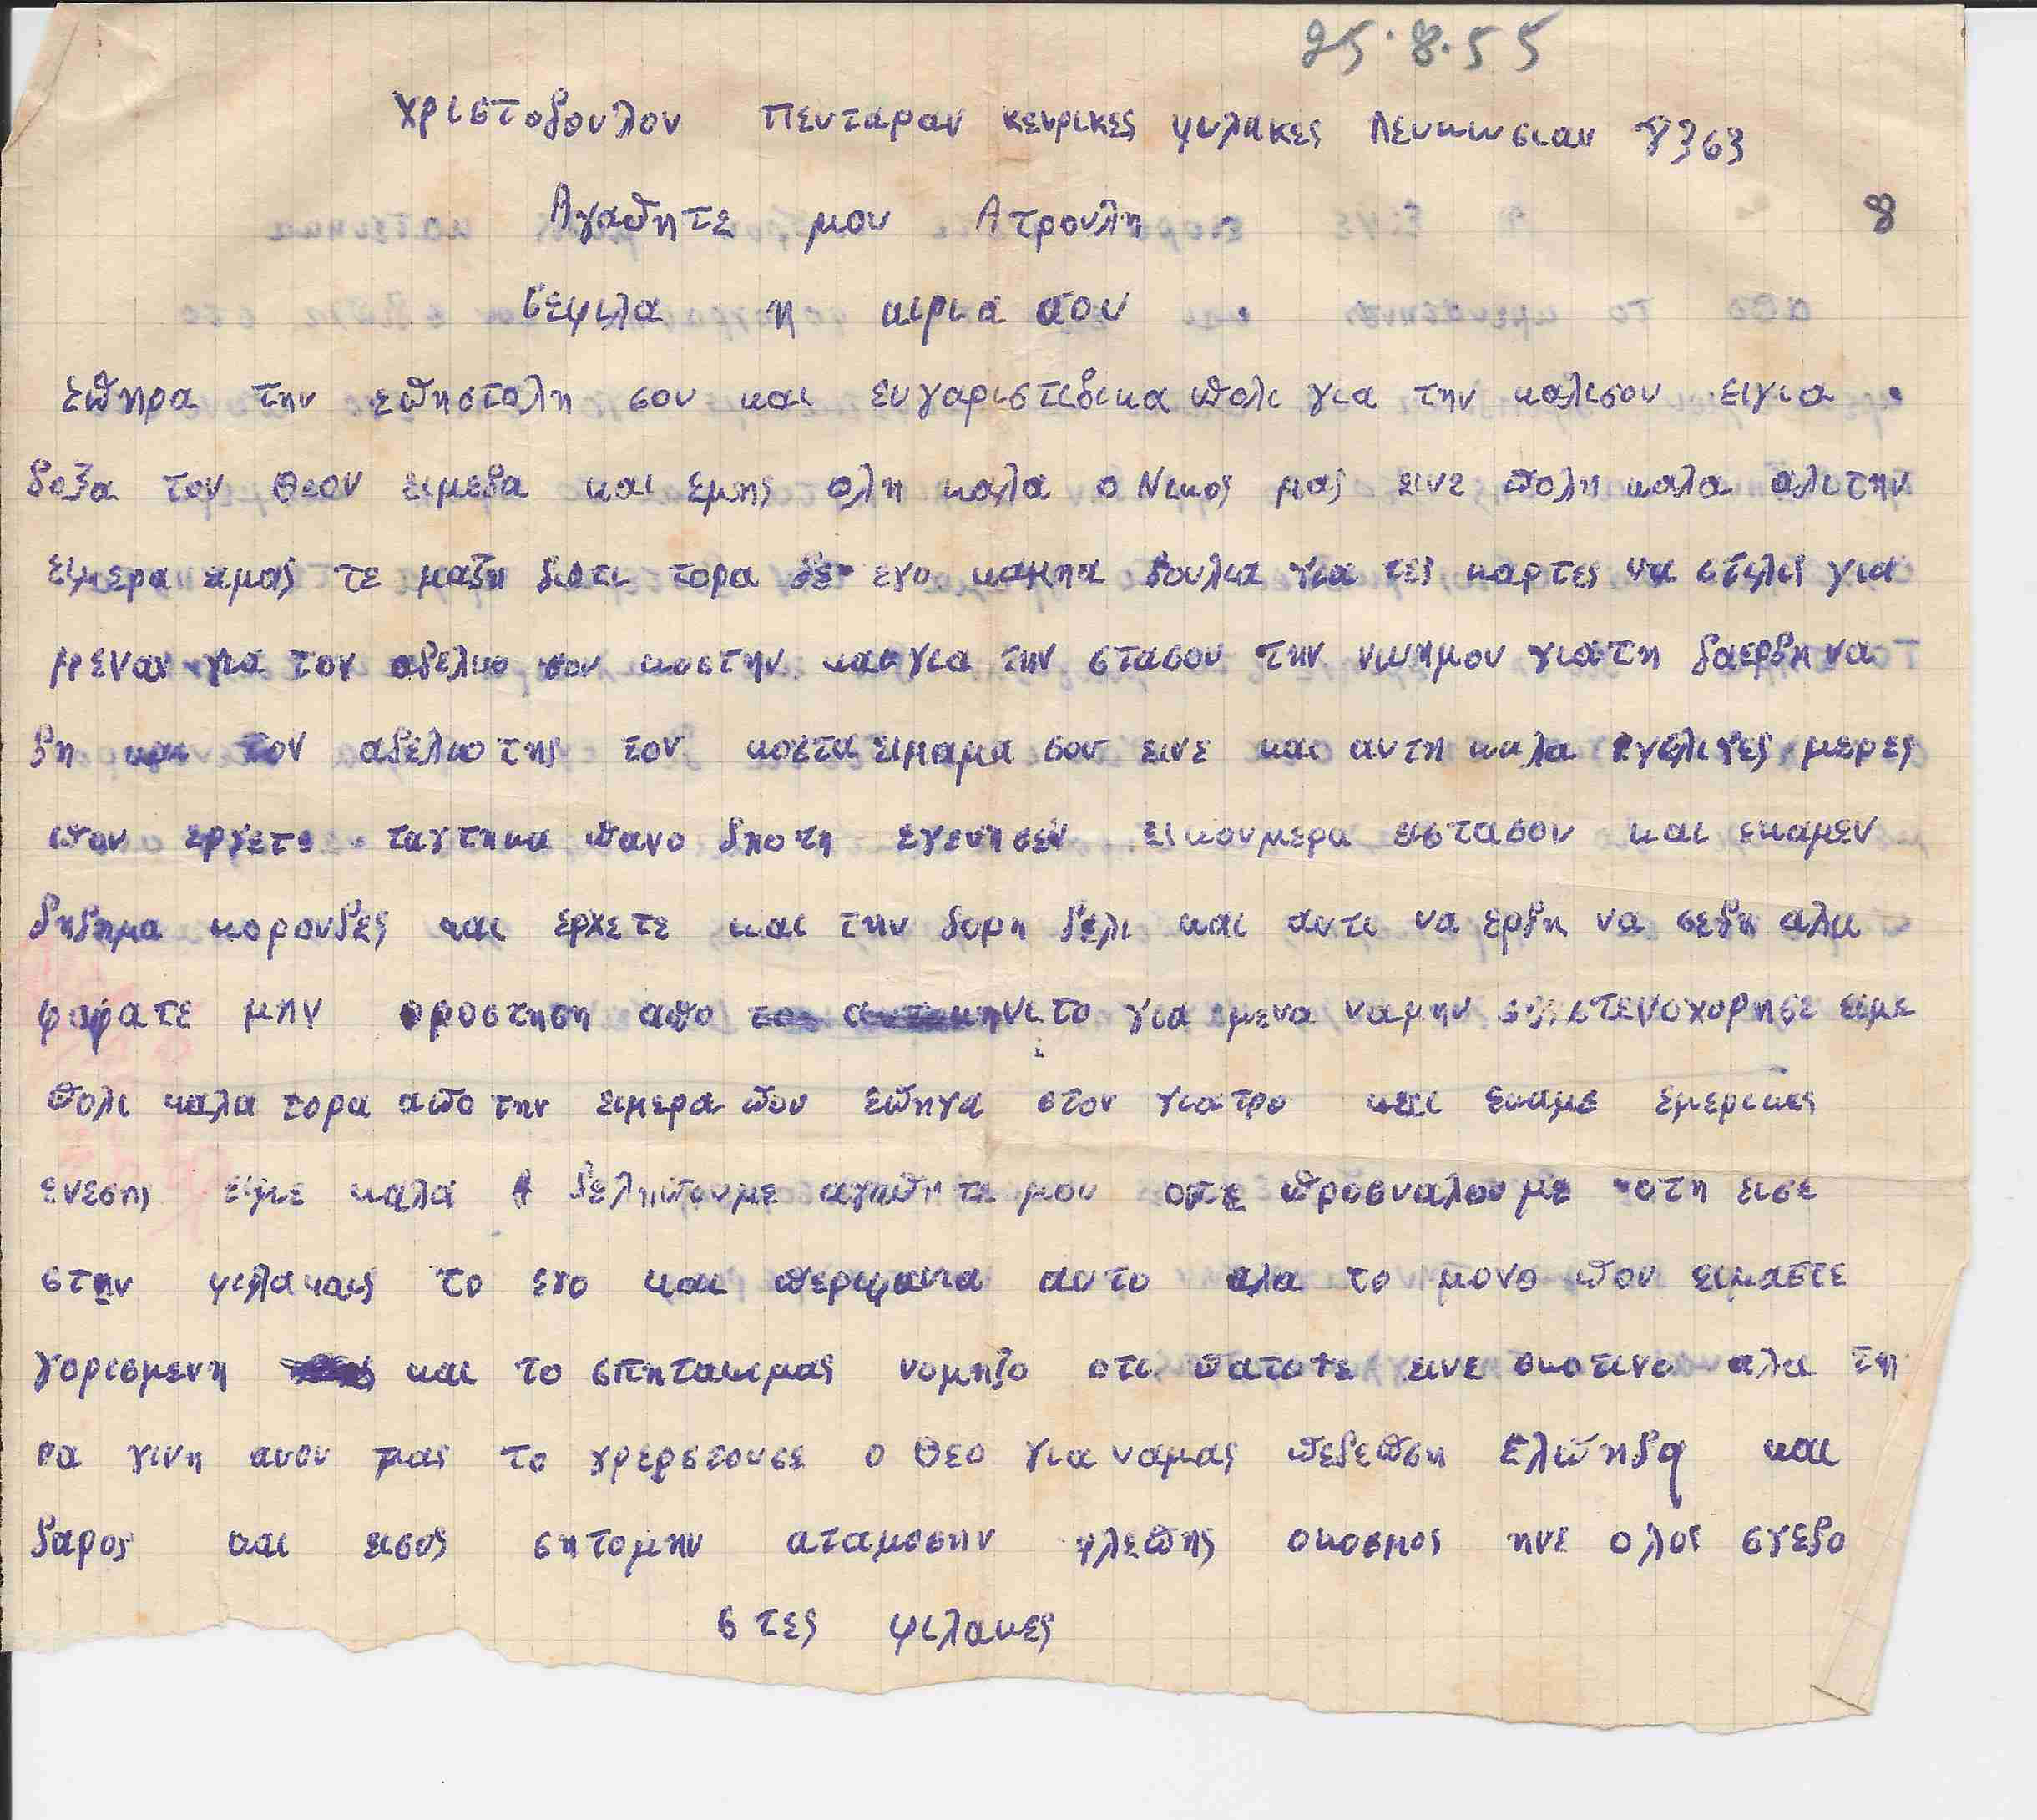 25.8.55
Χριστοδουλου Πενταραν κενρικες φυλακες Λευκωσιαν 8363
8
Αγαπητε μου Ατρουλη
σεφιλα η κιρια σου
επηρα την επηστολη σου και ευγαριστιδικα πολι για την καλισου ειγια
δοξα τον θεον ειμεδα και εμης ολη καλα ο Νικος μας εινε πολη καλα αλιτην
ειμερα αμας τε μαζη διοτι τορα δε εγο καμηα δουλια για τες καρτες να στιλις για
μεναν για τον αδελκο σου κοστην και για την στασου την νιημου γιατη δαερδη να
δη και τον αδελκο της τον κοστα ειμαμα σου εινε και αυτη καλα εγολιγες μερες
που εργετε ταγτηκα πανο δηοτη εγενησεν εικουμερα ειστασου και εκαμεν
δηδημα κορουδες και ερχετε και την δορη δελι και αυτι να ερδη να σεδη αλα
φαφατε μην οροστηση απο το για μενα ναμην στενοχορησε ειμε
πολι καλα τορα απο την ειμερα που επηγα στον γιατρο και εκαμε εμερικες
ενεσης ειμε καλα δεληπουμε αγαπητε μου οτε προσναλουμε οτη εισε
στην φιλακας το εγο και περιφανια αυτο αλα το μονο που ειμαστε
γορισμενη και το σπητακιμας νομηζο οτι πατοτε εινε σκοτινο αλα τη
να γινη αυου μας το χρερστουσε ο θεο για ναμας πεδεπση Ελπηδα και
δαρος και εισος σητομην αταμοσην φλεπης οκοσμος ηνε ολος σγεδο
στες φιλακες